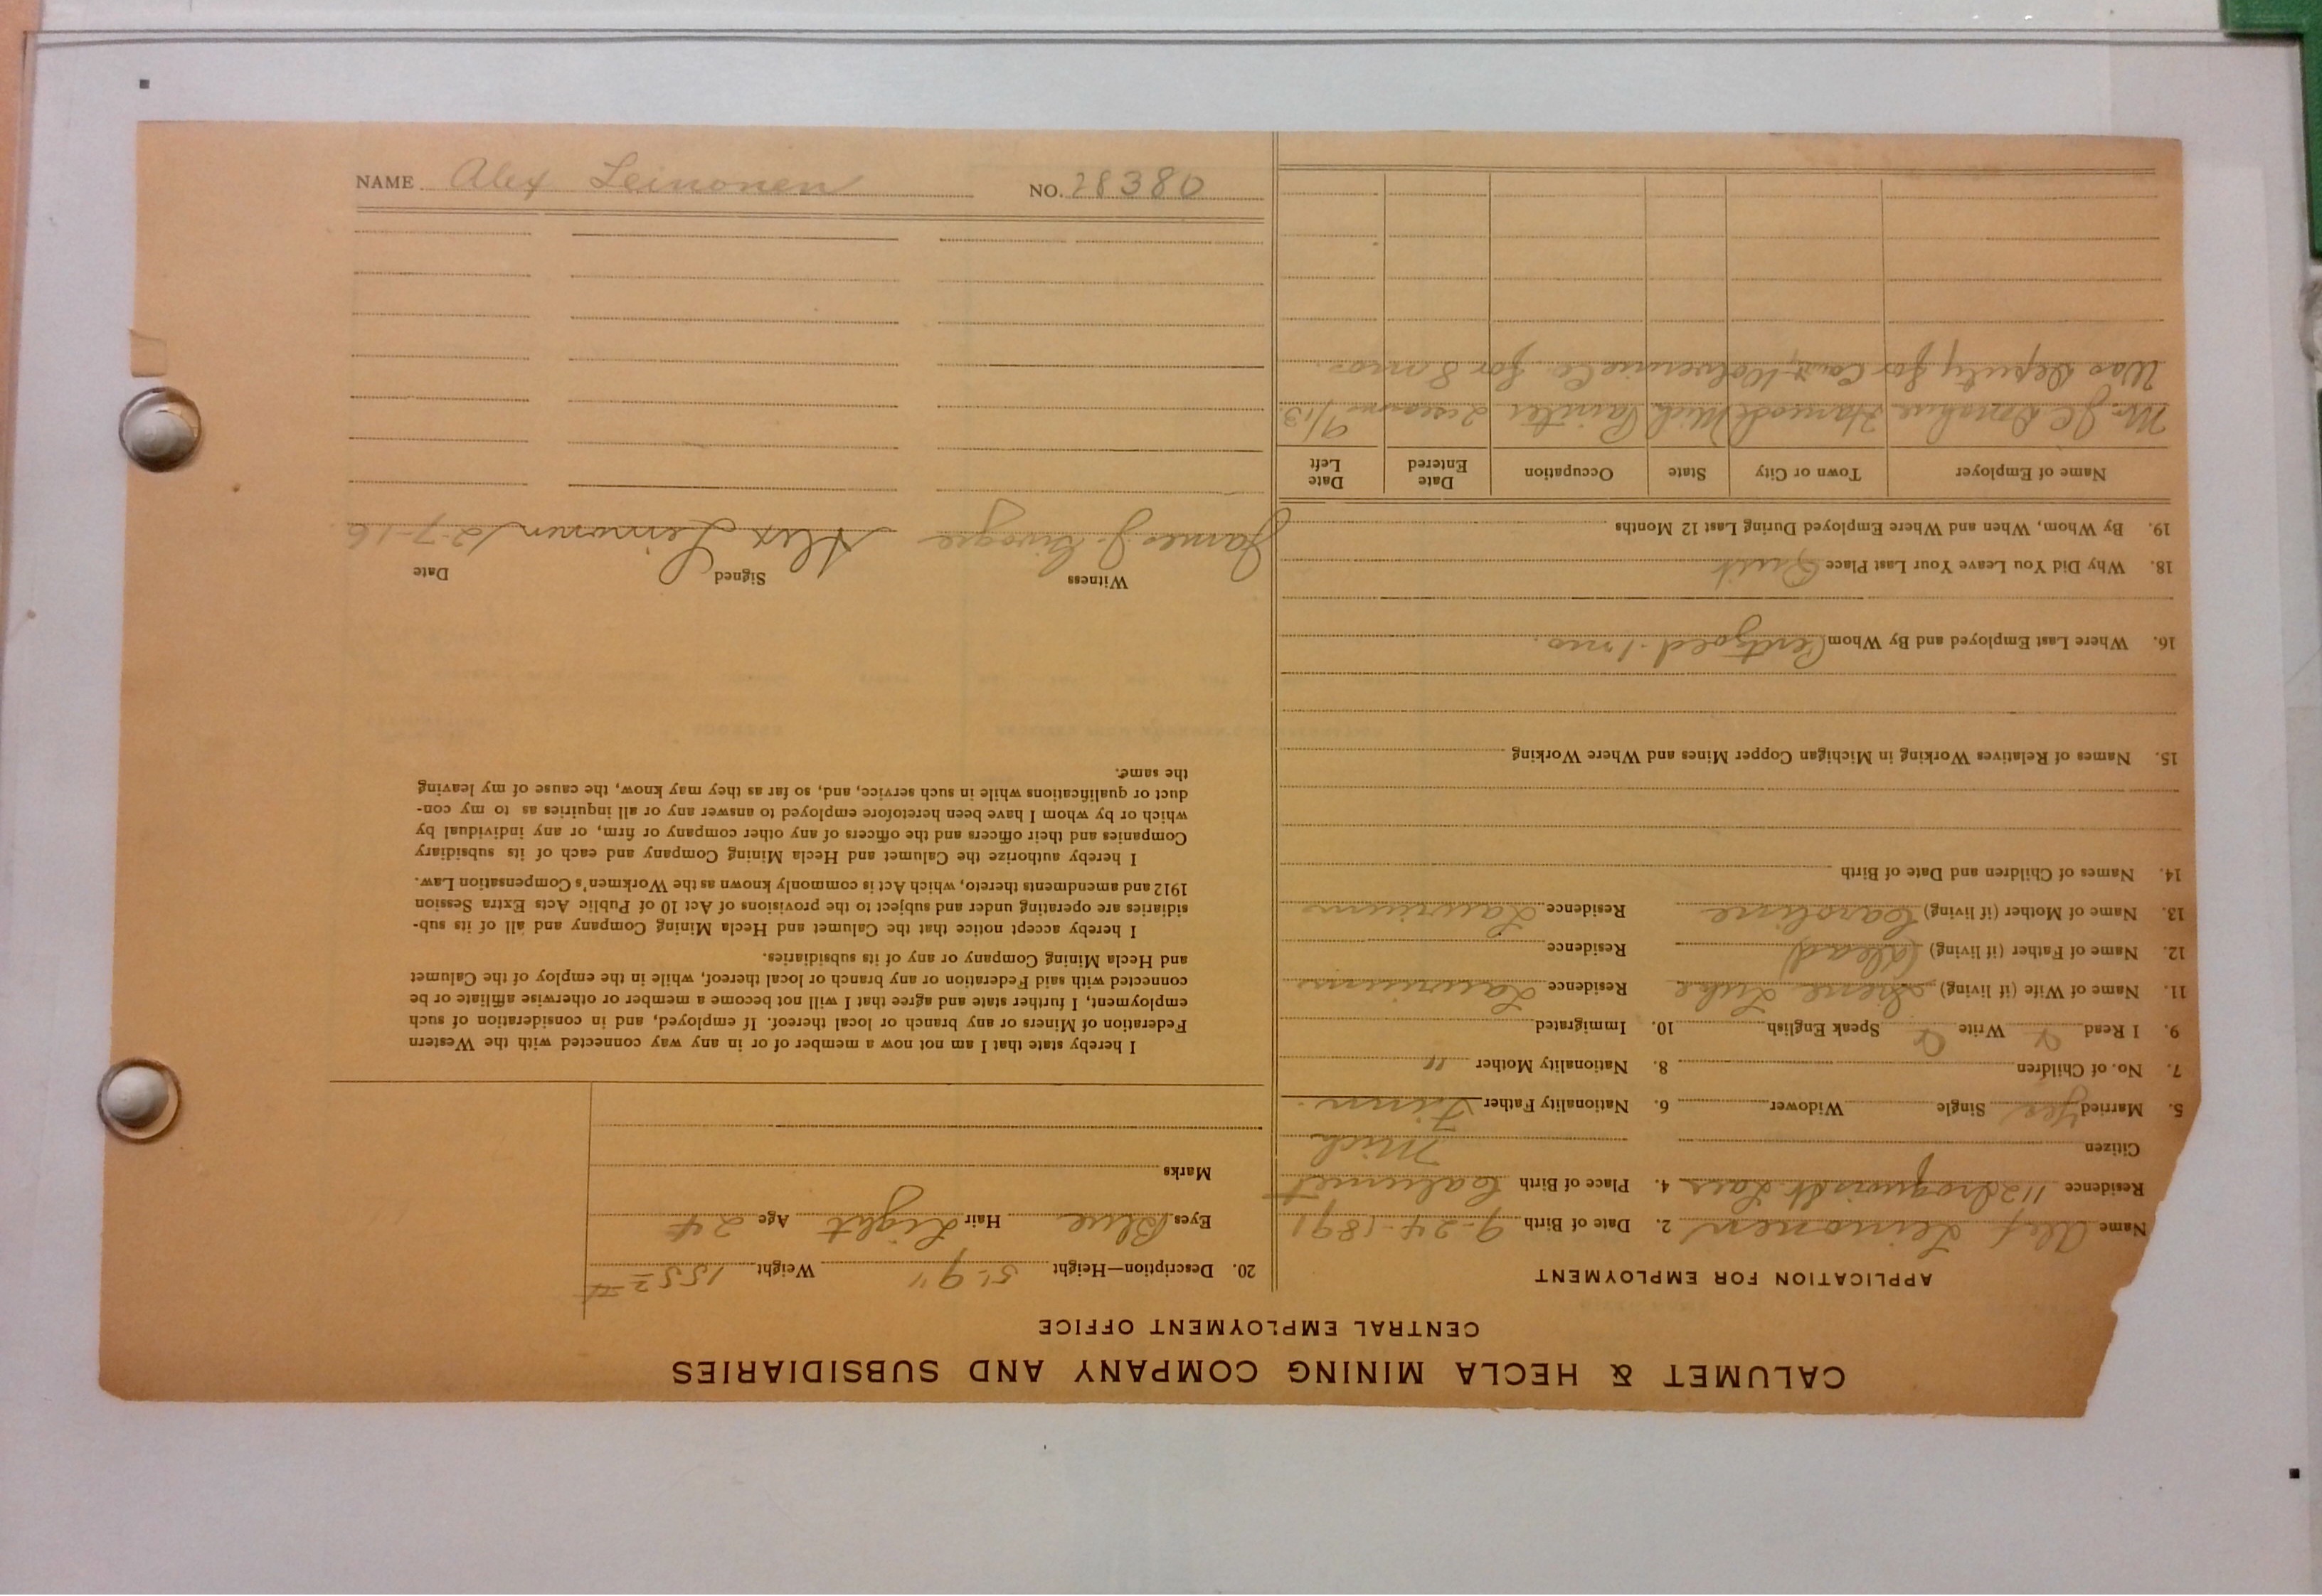 CALUMET & HECLA MINING COMPANY AND SUBSIDIARIES
CENTRAL EMPLOYMENT OFFICE
APPLICATION FOR EMPLOYMENT
Name Alex Leinonen 2. Date of Birth 9-24-1891
Residence 112 Iroquois St Laur. 4. Place of Birth Calumet
Citizen Mich
5. Married Yes Single Widower 6. Nationality Father Finn.
7. No. of Children 8. Nationality Mother "
9. I Read Write Speak English 10. Immigrated
11. Name of Wife (if living) Residence Laurium
12. Name of Father (if living) (dead) Residence
13. Name of Mother (if living) Caroline Residence Laurium
14. Names of Children and Date of Birth
15. Names of Relatives Working in Michigan Copper Mines and Where Working
16. Where Last Employed and By Whom 1 mo.
18. Why Did You Leave Your Last Place Quit
19. By Whom, When and Where Employed During Last 12 Months
Name of Employer Town or City State Occupation Date Entered Date Left
Mr. J C Donahue Hancock Mich Painter 9/13
Was deputy for Co. at Wolverine for 8 mos.
20. Description—Height 5'-9" Weight 155
Eyes Blue Hair Light Age 24
Marks
I hereby state that I am not now a member of or in any way connected with the Western
Federation of Miners or any branch or local thereof. If employed, and in consideration of such
employment, I further state and agree that I will not become a member or otherwise affiliate or be
connected with said Federation or any branch or local thereof, while in the employ of the Calumet
and Hecla Mining Company or any of its subsidiaries.
I hereby accept notice that the Calumet and Hecla Mining Company and all of its sub-
sidiaries are operating under and subject to the provisions of Act 10 of Public Acts Extra Session
1912 and amendments thereto, which Act is commonly known as the Workmen's Compensation Law.
I hereby authorize the Calumet and Hecla Mining Company and each of its subsidiary
Companies and their officers and the officers of any other company or firm, or any individual by
which or by whom I have been heretofore employed to answer any or all inquiries as to my con-
duct or qualifications while in such service, and, so far as they may know, the cause of my leaving
the same.
Witness Signed Date
James J. Alex Leinonen 12-7-16
NAME Alex Leinonen NO. 28380